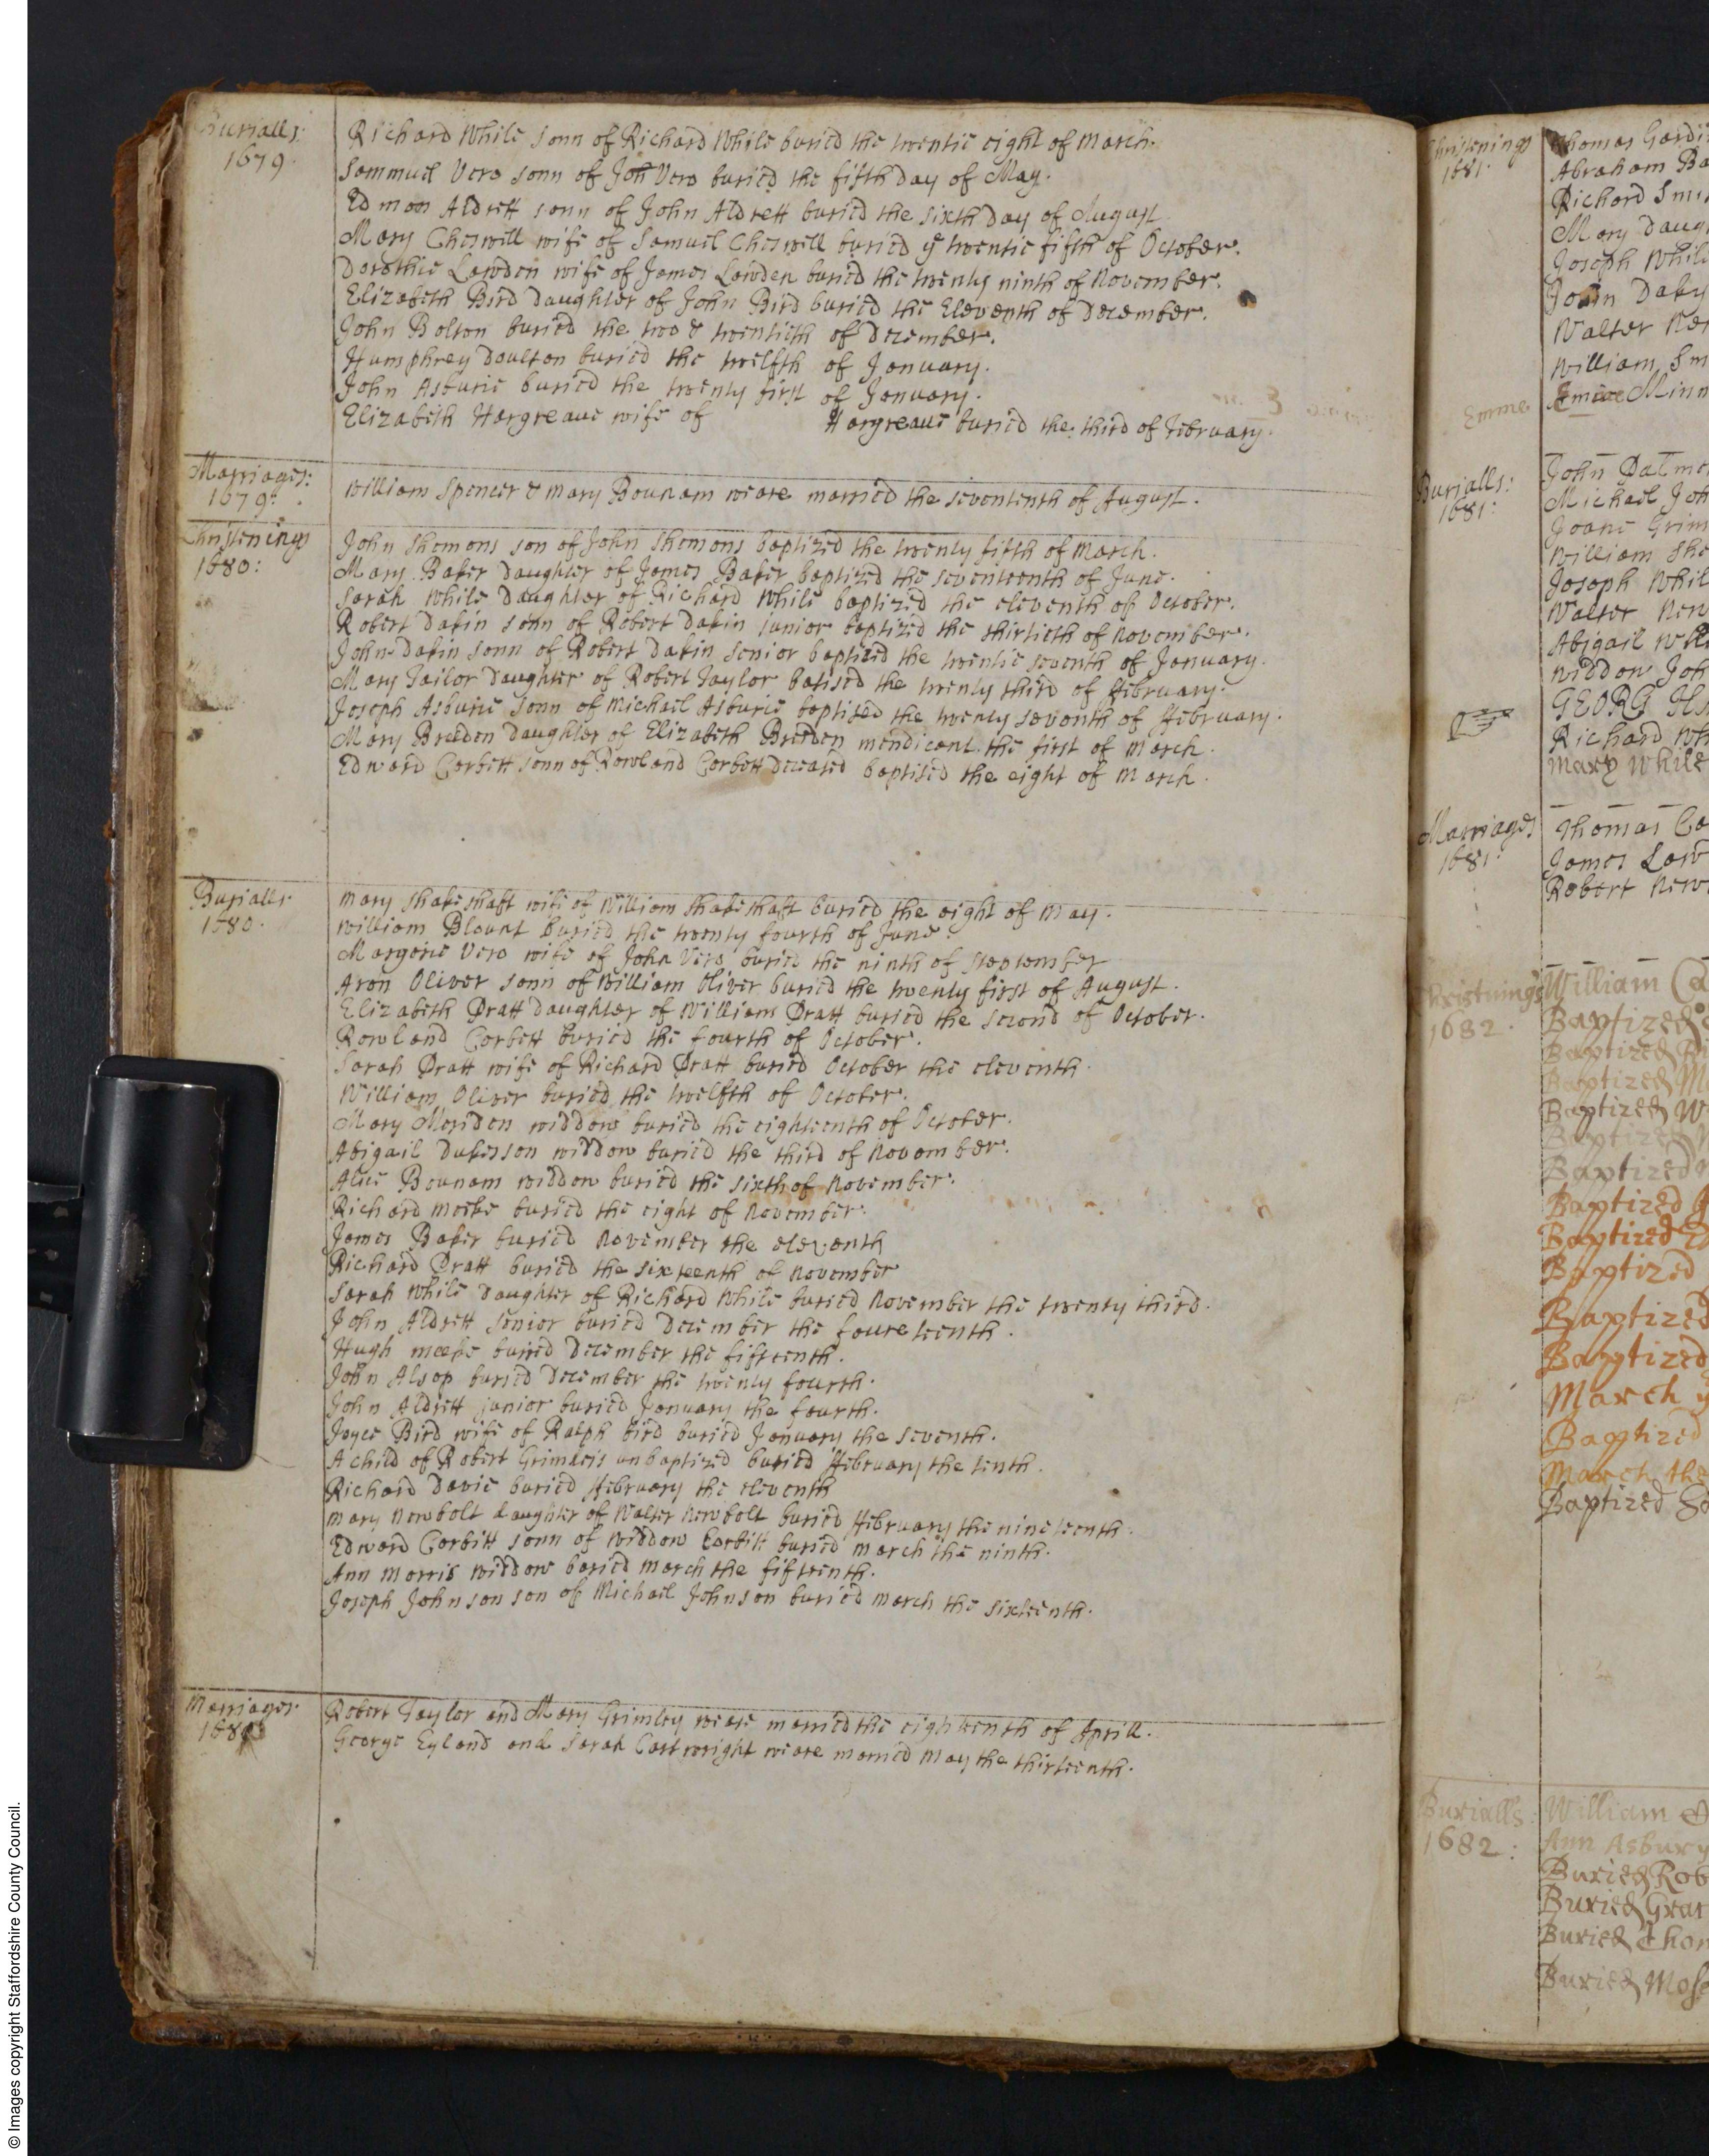 Burialls:
1679.
Richard While sonn of Richard While buried the twentie eight of March.
Sammuel Vero sonn of John Vero buried the fifth day of May.
Edmon Aldrett sonn of John Aldrett buried the sixth day of August
Mary Cheswell wife of Samuel Cheswell buried ye twentie fifth of October.
Dorothie Lawden wife of James Lawden buried the twenty ninth of November.
Elizabeth Bird daughter of John Bird buried the Eleventh of December.
John Bolton buried the two & twentieth of December.
Humphrey Doulton buried the twelfth of January.
John Asburie buried the twenty first of January.
Elizabeth Hargreave wife of Hargreave buried the third of February.
Marriages:
1679:
William Spencer & Mary Bounam weare married the sevententh of August.
Christenings
1680:
John Shemons son of John Shemons baptized the twenty fifth of March.
Mary Baker daughter of James Baker baptized the seventeenth of June.
Sarah While daughter of Richard While baptized the eleventh of October.
Robert Dakin sonn of Robert Dakin junior baptized the thirtieth of November.
John Dakin sonn of Robert Dakin senior baptized the twentie seventh of January.
Mary Tailor daughter of Robert Taylor batised the twenty third of February.
Joseph Asburie sonn of Michael Asburie baptized the twenty seventh of February.
Mary Breeden daughter of Elizabeth Breeden mendicant the first of March.
Edward Corbett sonn of Rowland Corbett deceased baptised the eight of March.
Burialls
1680.
Mary Shakeshaft wife of William Shakeshaft buried the eight of May.
William Blount buried the twenty fourth of June.
Margerie Vero wife of John Vero buried the ninth of September
Aron Oliver sonn of William Oliver buried the twenty first of August.
Elizabeth Pratt daughter of William Pratt buried the second of October.
Rowland Corbett buried the fourth of October.
Sarah Pratt wife of Richard Pratt buried October the eleventh.
William Oliver buried the twelfth of October.
Mary Meriden widdow buried the eighteenth of October.
Abigail Dukesson widdow buried the third of November.
Alice Bounam widdow buried the sixth of November.
Richard Meeke buried the eight of November.
James Baker buried November the eleventh
Richard Pratt buried the sixteenth of November
Sarah While daughter of Richard While buried November the twenty third.
John Aldrett senior buried December the foureteenth.
Hugh meeke buried December the fifteenth.
John Alsop buried December the twenty fourth.
John Aldrett junior buried January the fourth.
Joyce Bird wife of Ralph Bird buried January the seventh.
A child of Robert unbaptized buried February the tenth.
Richard Davie buried February the eleventh
Mary Newbolt daughter of Walter Newbolt buried February the nineteenth.
Edward Corbitt sonn of widdow Corbitt buried march the ninth.
Ann Morris widdow buried march the fifteenth.
Joseph Johnson son of Michael Johnson buried march the sixteenth.
Marriages
1680
Robert Taylor and Mary Grimley weare married the eighteenth of Aprill.
George Eyland and Sarah Cartwright weare married May the thirteenth.
Christenings
1681.
Thomas
Abraham
Richard
Mary
Joseph
John
Walter
William
Emme
Burialls:
1681:
John
Michael
Joane
William
Joseph
Walter
Abigail
widdow
GEORG
Richard
Mary While
Marriages
1681.
Thomas
James
Robert
Christnings
1682.
William
Baptized
Baptized
Baptized
Baptized
Baptized
Baptized
Baptized
Baptized
Baptized
Baptized
Baptized
March
Baptized
March the
Baptized
Burialls
1682:
William
Ann Asbury
Buried
Buried
Buried
Buried
© Images copyright Staffordshire County Council.